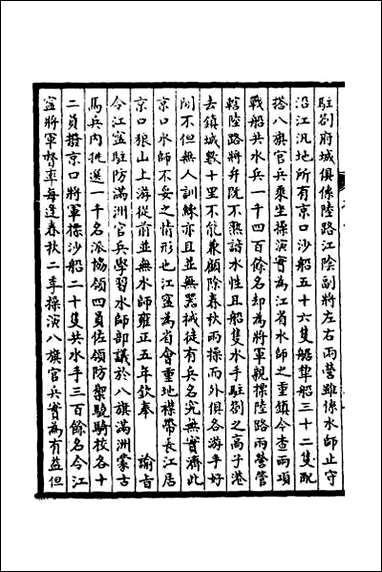 駐劄府城俱係陸路江陰副將左右兩營雖係水師止守
沿江汎地所有京口沙船五十六隻艍犂船三十二隻配
搭八旗官兵乘坐操演實為江省水師之重鎮今查兩項
戰船共水兵一千四百餘名却為將軍親標陸路兩營管
轄陸路將弁既不熟諳水性且船隻水手駐劄之高子港
去鎮城數十里不能兼顧除春秋兩操而外俱各游手好
閒不但無人訓練亦且並無器械徒有兵名究無實濟此
京口水師不妥之情形也江寧為省會重地襟帶長江居
京口狼山上游從前並無水師雍正五年欽奉　諭旨
令江寧駐防滿洲官兵學習水師即議於八旗滿洲蒙古
馬兵內挑選一千名派協領四員佐領防禦驍騎校各十
二員撥京口將軍標沙船二十隻共水手三百餘名令江
寧將軍督率每逢春秋二季操演八旗官兵實為有益但